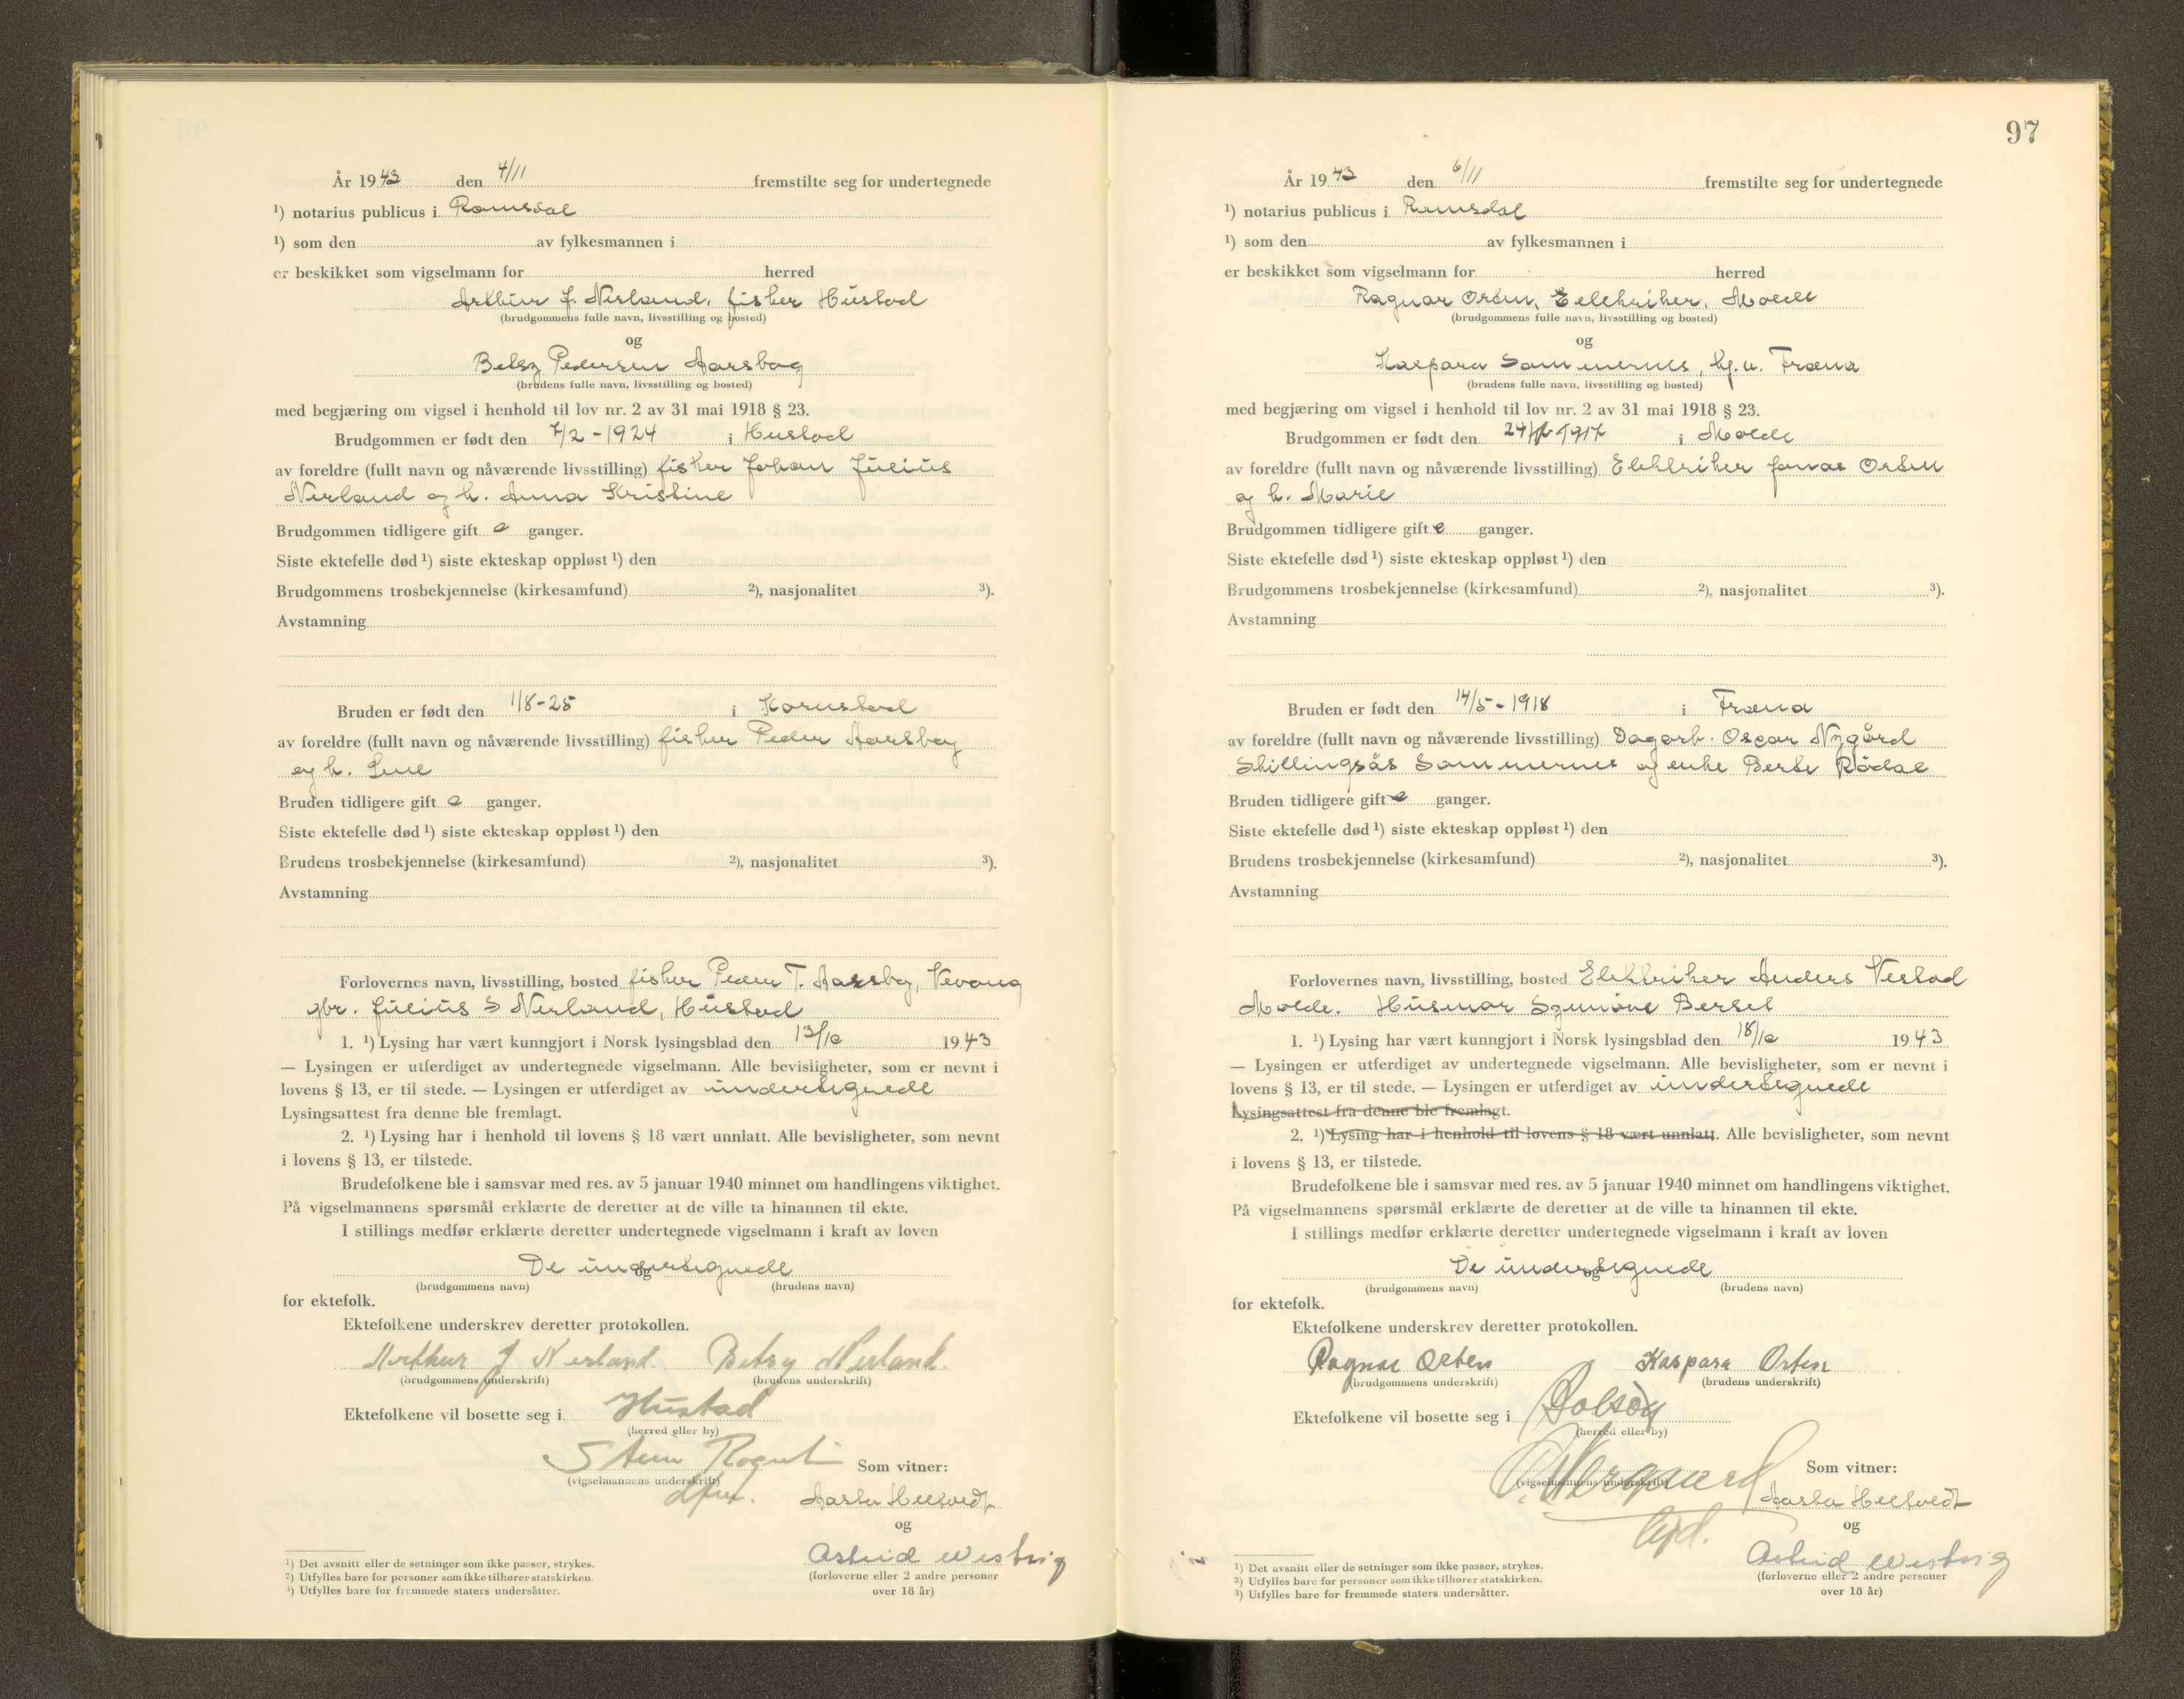 År 1943 den 4/11 fremstilte seg for undertegnede
¹) notarius publicus i Romsdal
¹) som den av fylkesmannen i
er beskikket som vigselmann for herred
Arthur J. Nerland, fisker Hustad
(brudgommens fulle navn, livsstilling og bosted)
og
Betsy Pedersen Aarsbog
(brudens fulle navn, livsstilling og bosted)
med begjæring om vigsel i henhold til lov nr. 2 av 31 mai 1918 § 23.
Brudgommen er født den 7/2-1924 i Hustad
av foreldre (fullt navn og nåværende livsstilling) fisker Johan Julius
Nerland og h. Anna Kristine
Brudgommen tidligere gift 0 ganger.
Siste ektefelle død ¹) siste ekteskap oppløst ¹) den
Brudgommens trosbekjennelse (kirkesamfund) ²), nasjonalitet ³).
Avstamning
Bruden er født den 1/8-25 i Kornstad
av foreldre (fullt navn og nåværende livsstilling) fisker Peder Aarsbog
og h. Line
Bruden tidligere gift 0 ganger.
Siste ektefelle død ¹) siste ekteskap oppløst ¹) den
Brudens trosbekjennelse (kirkesamfund) ²), nasjonalitet ³).
Avstamning
Forlovernes navn, livsstilling, bosted fisker Peder T. Aarsbog, Vevang
gbr. Julius S Nerland, Hustad
1. ¹) Lysing har vært kunngjort i Norsk lysingsblad den 13/10 1943
— Lysingen er utferdiget av undertegnede vigselmann. Alle bevisligheter, som er nevnt i
lovens § 13, er til stede. — Lysingen er utferdiget av undertegnede
Lysingsattest fra denne ble fremlagt.
2. ¹) Lysing har i henhold til lovens § 18 vært unnlatt. Alle bevisligheter, som nevnt
i lovens § 13, er tilstede.
Brudefolkene ble i samsvar med res. av 5 januar 1940 minnet om handlingens viktighet.
På vigselmannens spørsmål erklærte de deretter at de ville ta hinannen til ekte.
I stillings medfør erklærte deretter undertegnede vigselmann i kraft av loven
De undertegnede
og
(brudgommens navn) (brudens navn)
for ektefolk.
Ektefolkene underskrev deretter protokollen.
Arthur J Nerland Betsy Nerland
(brudgommens underskrift) (brudens underskrift)
Ektefolkene vil bosette seg i Hustad
(herred eller by)
Stein Som vitner:
(vigselmannens underskrift)
dfm. Aasta Heltvedt
og
Astrid Westvig
¹) Det avsnitt eller de setninger som ikke passer, strykes.
²) Utfylles bare for personer som ikke tilhører statskirken.
³) Utfylles bare for fremmede staters undersåtter.
(forloverne eller 2 andre personer
over 18 år)
97
År 1943 den 6/11 fremstilte seg for undertegnede
¹) notarius publicus i Romsdal
¹) som den av fylkesmannen i
er beskikket som vigselmann for herred
Ragnar Orten, Eelektriker, Molde
(brudgommens fulle navn, livsstilling og bosted)
og
Kaspara Sommernes, hj.v. Fræna
(brudens fulle navn, livsstilling og bosted)
med begjæring om vigsel i henhold til lov nr. 2 av 31 mai 1918 § 23.
Brudgommen er født den 1917 i Molde
av foreldre (fullt navn og nåværende livsstilling) Elektriker Jonas Orten
og h. Marie
Brudgommen tidligere gift 0 ganger.
Siste ektefelle død ¹) siste ekteskap oppløst ¹) den
Brudgommens trosbekjennelse (kirkesamfund) ²), nasjonalitet ³).
Avstamning
Bruden er født den 14/5-1918 i Fræna
av foreldre (fullt navn og nåværende livsstilling) Dagarb. Oscar Nygård
Skillingsås Sommernes og enke Berte Rødal
Bruden tidligere gift 0 ganger.
Siste ektefelle død ¹) siste ekteskap oppløst ¹) den
Brudens trosbekjennelse (kirkesamfund) ²), nasjonalitet ³).
Avstamning
Forlovernes navn, livsstilling, bosted Elektriker Anders Vestad
Molde. Husmor Synnöve Berset
1. ¹) Lysing har vært kunngjort i Norsk lysingsblad den 18/10 1943
— Lysingen er utferdiget av undertegnede vigselmann. Alle bevisligheter, som er nevnt i
lovens § 13, er til stede. — Lysingen er utferdiget av undertegnede
Lysingsattest fra denne ble fremlagt.
2. ¹) Lysing har i henhold til lovens § 18 vært unnlatt. Alle bevisligheter, som nevnt
i lovens § 13, er tilstede.
Brudefolkene ble i samsvar med res. av 5 januar 1940 minnet om handlingens viktighet.
På vigselmannens spørsmål erklærte de deretter at de ville ta hinannen til ekte.
I stillings medfør erklærte deretter undertegnede vigselmann i kraft av loven
De undertegnede
og
(brudgommens navn) (brudens navn)
for ektefolk.
Ektefolkene underskrev deretter protokollen.
Ragnar Orten Kaspara Orten
(brudgommens underskrift) (brudens underskrift)
Ektefolkene vil bosette seg i Bolsøy
(herred eller by)
Som vitner:
(vigselmannens underskrift)
Aasta Heltvedt
og
Astrid Westvig
¹) Det avsnitt eller de setninger som ikke passer, strykes.
²) Utfylles bare for personer som ikke tilhører statskirken.
³) Utfylles bare for fremmede staters undersåtter.
(forloverne eller 2 andre personer
over 18 år)